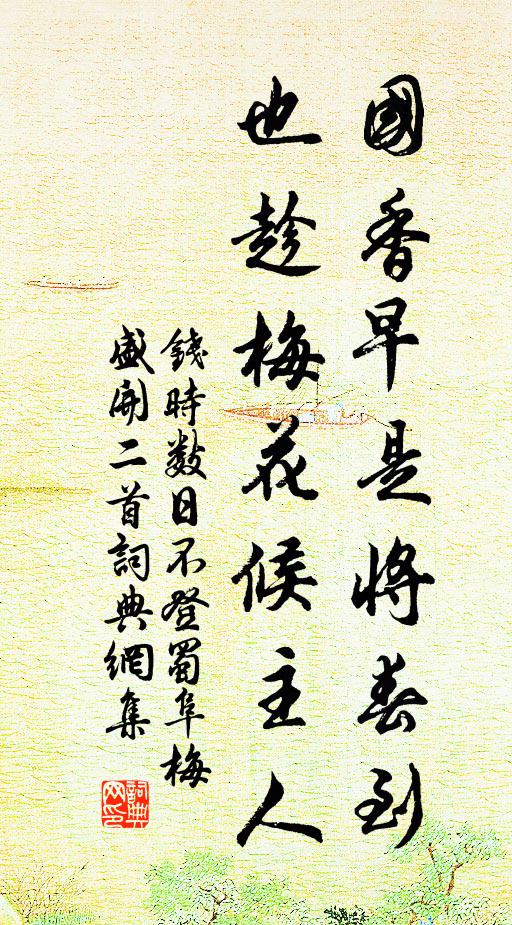 國香早是將春到
也趁梅花候主人
錢時數日不登蜀阜梅
盛開二首詞典網集
詞典
网印